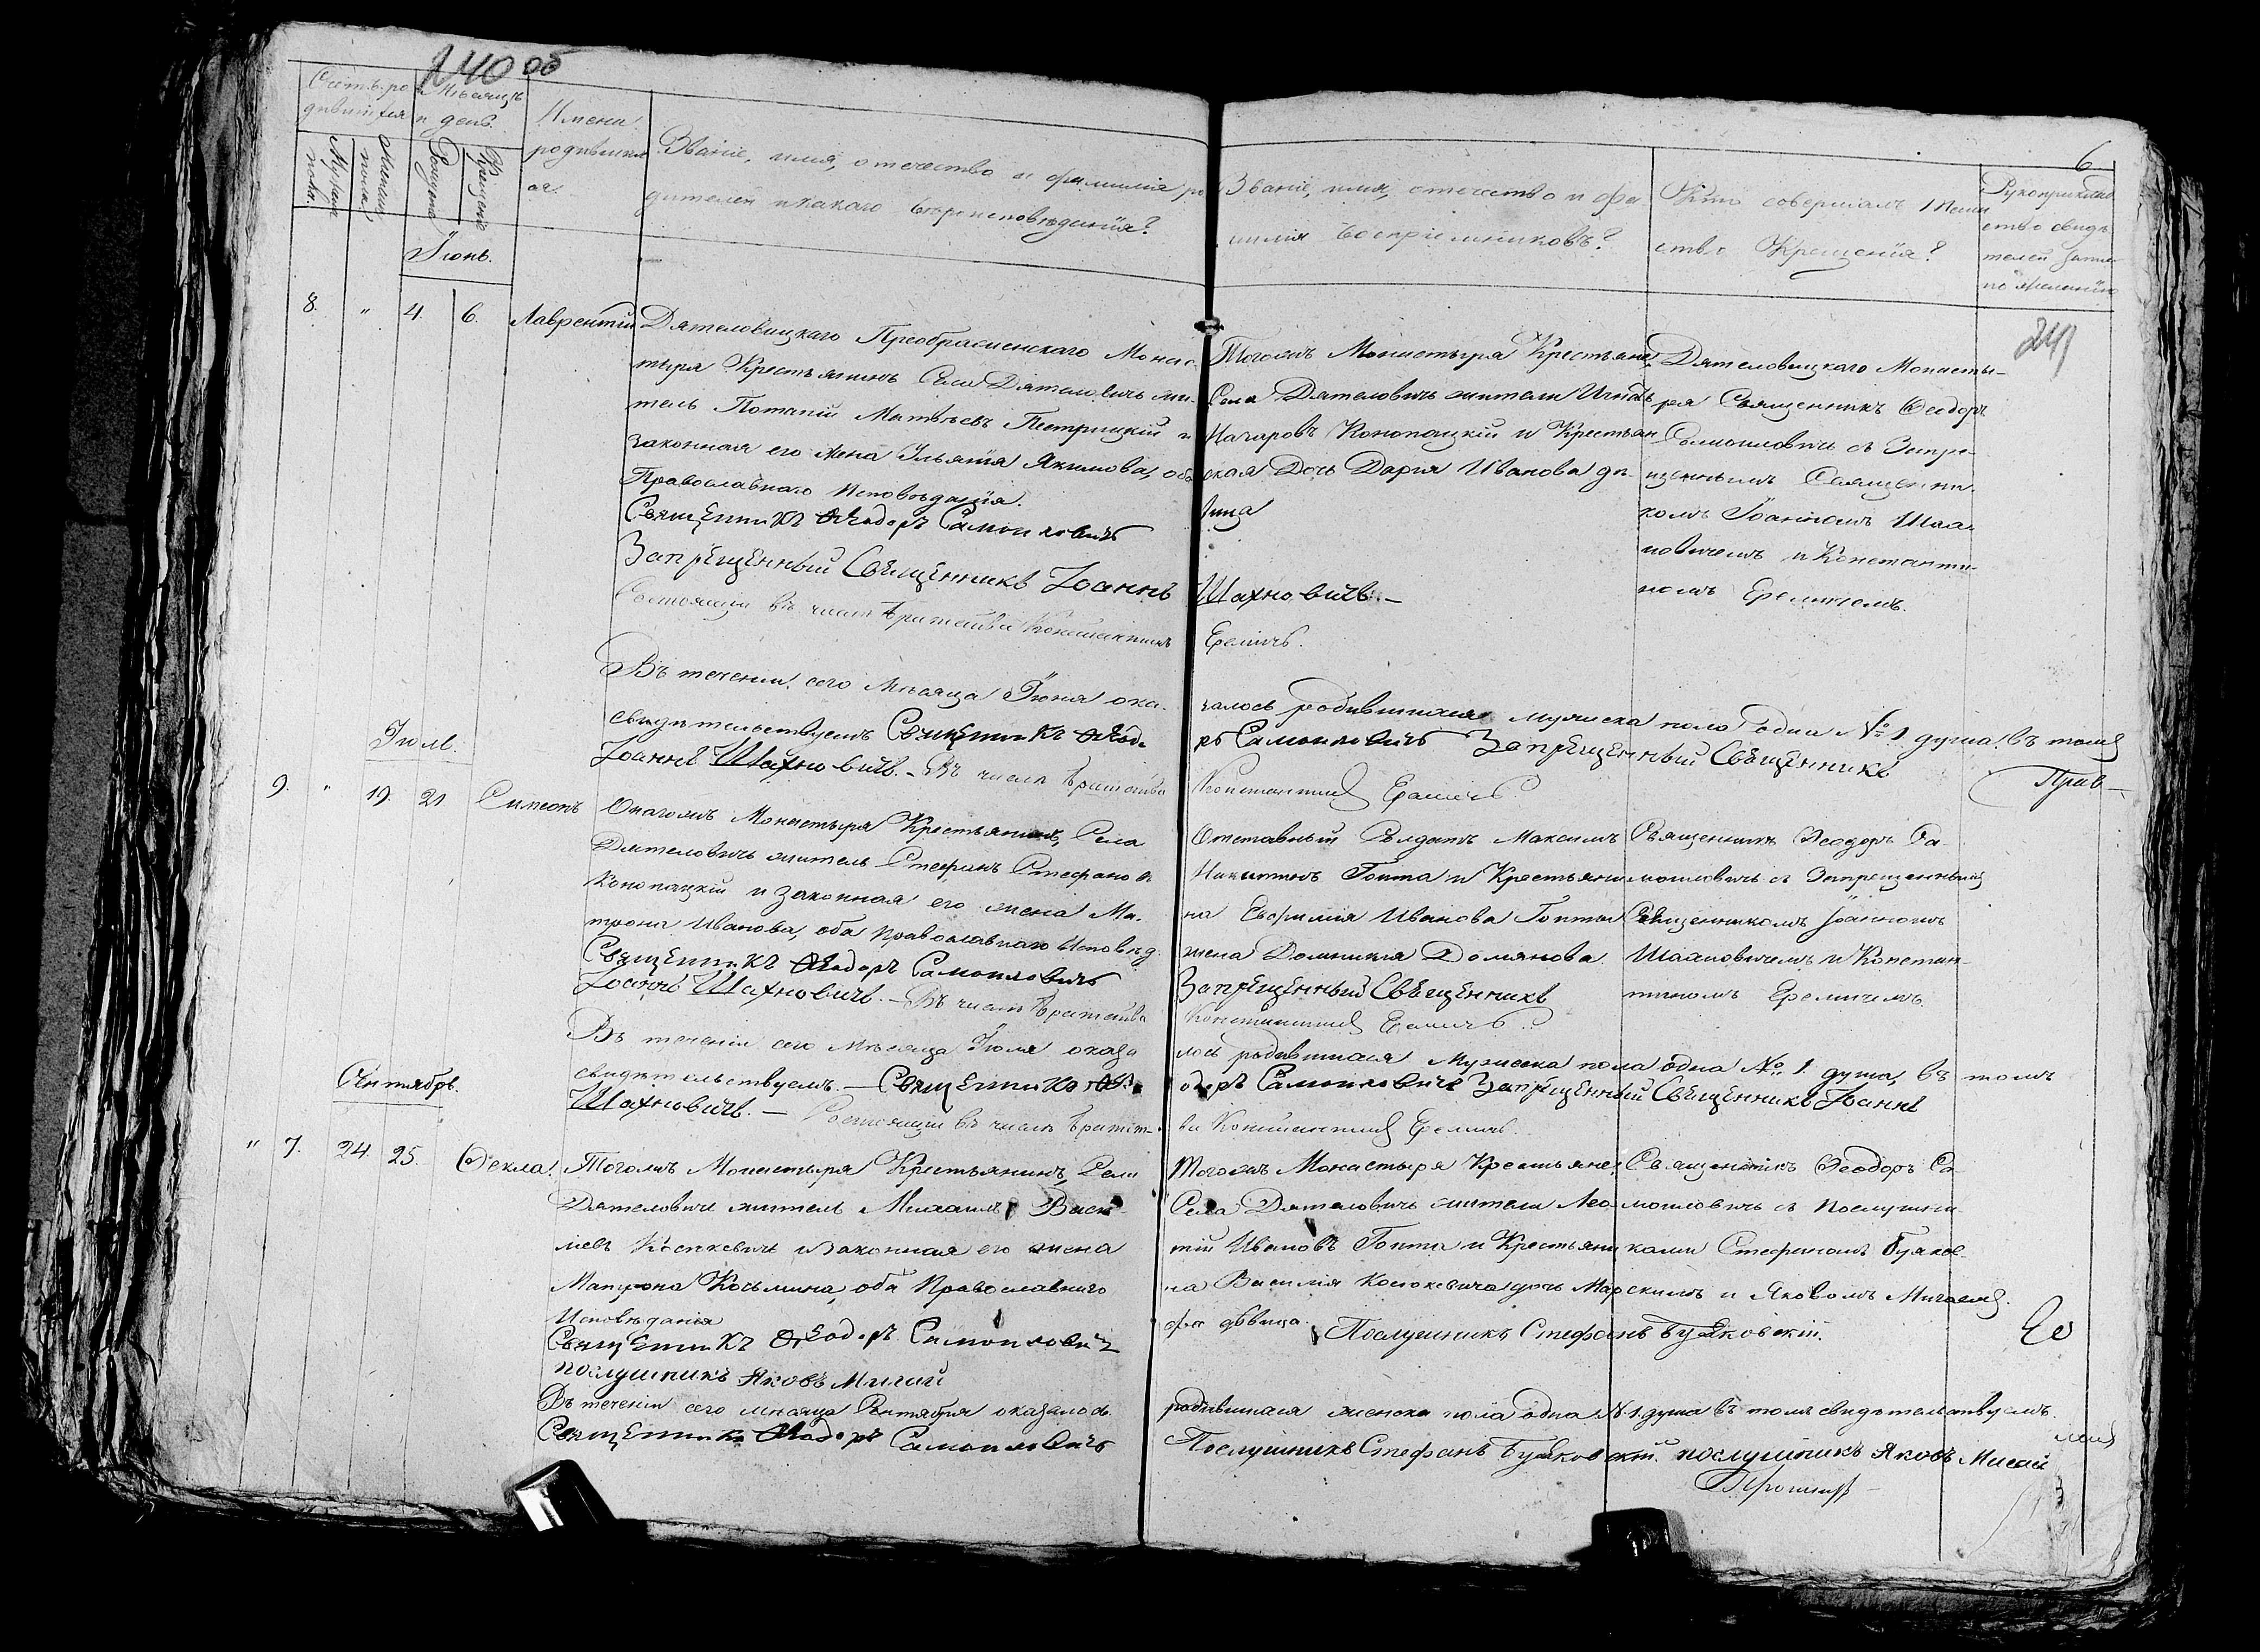 240 об
6
241
Счетъ ро
дившихся
Мѣсяцъ
и день.
Имена
родивших
ся.
Званіе, имя, отечество и фамилія ро
дителей и какаго вѣроисповѣданія?
Званіе, имя, отечество и фа
милія воспріемниковъ?
Кто совершалъ таин
ство Крещенія?
Рукоприклад
ство свидѣ
телей записи
по желанію
Мужеск
пола.
Женска
пола.
Рожденія
Крещенія
Іюнь.
8. " 4. 6. Лаврентій
Дятеловицкаго Преображенскаго Монас
тыря Крестьянинъ Села Дятеловичь жи-
тель Потапій Матѳѣевъ Петрицкій и
законная его жена Ульянія Якимова, оба
Православнаго Исповѣданія.
Священникъ Ѳеодоръ Самойловичъ
Запрещенный Священникъ Іоаннъ
Состоящій въ числѣ братства Константинъ
Тогожъ Монастыря Крестьяне,
Села Дятеловичь жители Игнатъ
Назаровъ Конопацкій и Крестьян
ская Дочь Дарія Иванова дѣ-
вица
Шахновичъ.—
Еремичъ.
Дятеловицкаго Монасты-
ря Священникъ Ѳеодоръ
Самойловичъ съ Запре-
щеннымъ Священни-
комъ Іоанномъ Шах-
новичемъ и Константи-
номъ Еремичемъ.
Въ теченіи сего Мѣсяца Іюня ока-
залось родившихся мужеска пола одна № 1 душа. въ томъ
свидѣтельствуемъ Священникъ Ѳеодо
ръ Самойловичъ Запрещенный Священникъ
Іоаннъ Шахновичъ.- Въ числѣ братства
Константинъ Еремичъ
Прав—
Іюль.
9. " 19. 21 Симеонъ
Онагожъ Монастыря Крестьянинъ, Села
Дятеловичь житель Стефанъ Стефановъ
Конопацкій и законная его жена Ма-
трона Иванова, оба православнаго Исповѣд.
Священникъ Ѳеодоръ Самойловичъ
Іоаннъ Шахновичъ.- Въ числѣ братства
Отставный Солдатъ Максимъ
Никитинъ Гопта и Крестьяни
на Евфимія Иванова Гопты
жена Домникія Домянова.
Запрещенный Священникъ
Константинъ Еремичъ.
Священникъ Ѳеодоръ Са-
мойловичъ съ Запрещеннымъ
Священникомъ Іоанномъ
Шахновичемъ и Констан-
тиномъ Еремичемъ
Въ теченіи сего Мѣсяца Іюля оказа
лось родившихся Мужеска пола одна № 1. душа, въ томъ
свидѣтельствуемъ.— Священникъ Ѳе
одоръ Самойловичъ Запрещенный Священникъ Іоаннъ
Шахновичъ.— Состоящій въ числѣ братст-
ва Константинъ Еремичъ.
Сентябрь.
" 7. 24 25. Ѳекла.
Тогожъ Монастыря Крестьянинъ, Села
Дятеловичь житель Михаилъ Васи-
ліевъ и законная его жена
Матрона Козьмина, оба Православнаго
Исповѣданія
Священникъ Ѳеодоръ Самойловичъ
послушникъ Яковъ Мигай
Тогожъ Монастыря Крестьяне,
Села Дятеловичь жители Лео-
нтій Ивановъ Гопта и Крестьяни
на Василія дочь Мар
фа дѣвица.
Послушникъ Стефанъ Буяковскій.
Священникъ Ѳеодоръ Са-
мойловичъ съ послушни-
ками Стефаномъ Буяков-
скимъ и Яковомъ Мигаемъ.
Въ теченіи сего мѣсяца Сентября оказалось
родившихся женска пола одна № 1. душа въ томъ свидѣтельствуемъ.
Священникъ Ѳеодоръ Самойловичъ
Послушникъ Стефанъ Буяковскій. послушникъ Яковъ Мигай